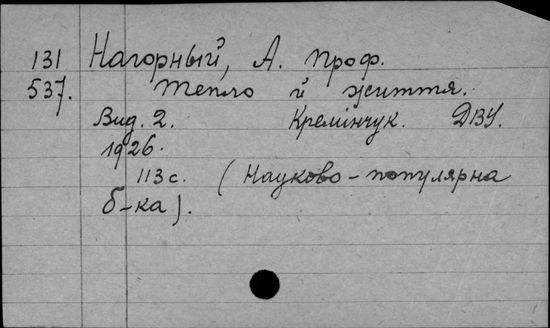 131 Нагорный, А. проф.
537. Тепло й життя.
Вид. 2. Кремінчук. ДВУ.
1926.
113 с. (Науково-популярна
б-ка).